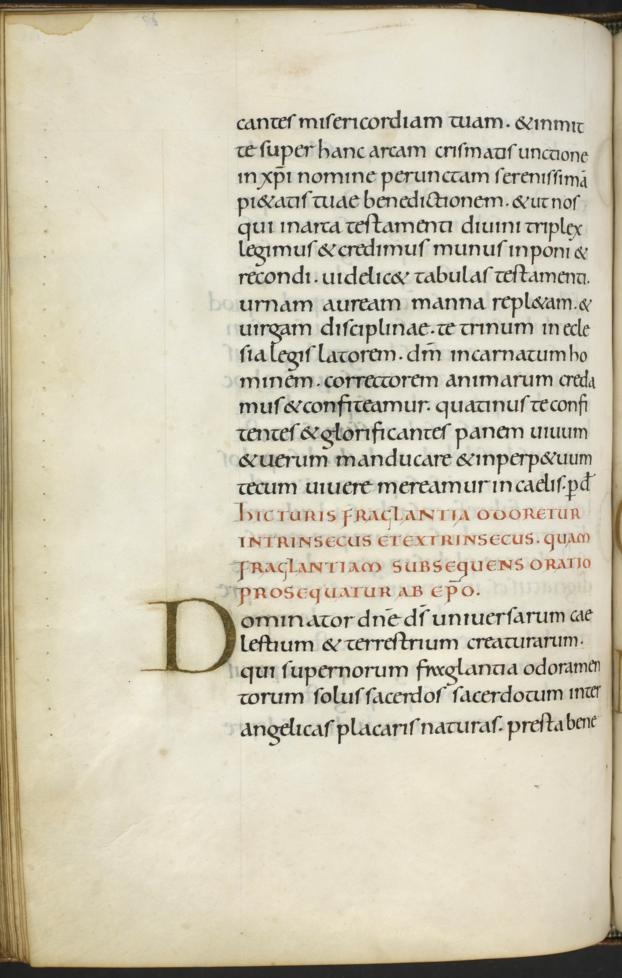 cantes misericordiam tuam. &inmit
te super hanc arcam crismatis unctione
in xp̄i nomine perunctam serenissimā
pi&atis tuae benedictionem. & ut nos
qui in arta testamenti diuini triplex
legimus & credimus munus inponi &
recondi. uidelic& tabulas testamenti.
urnam auream manna repl&am. &
uirgam disciplinae. te trinum in ecle
sia legis latorem. dm̄ incarnatum ho
minem. correctorem animarum creda
mus & confiteamur. quatinus te confi
tentes & glorificantes panem uiuum
& uerum manducare & inperp&uum
tecum uiuere mereamur in caelis. p̱ d̄
HIC TURIS FRAGLANTIA ODORETUR
INTRINSECUS ET EXTRINSECUS. QUAM
FRAGLANTIAM SUBSEQUENS ORATIO
PROSEQUATUR AB EP̄O.
Dominator dn̄e ds̄ uniuersarum cae
lestium & terrestrium creaturarum.
qui supernorum fraglantia odoramen
torum solus sacerdos sacerdotum inter
angelicas placaris naturas. presta bene